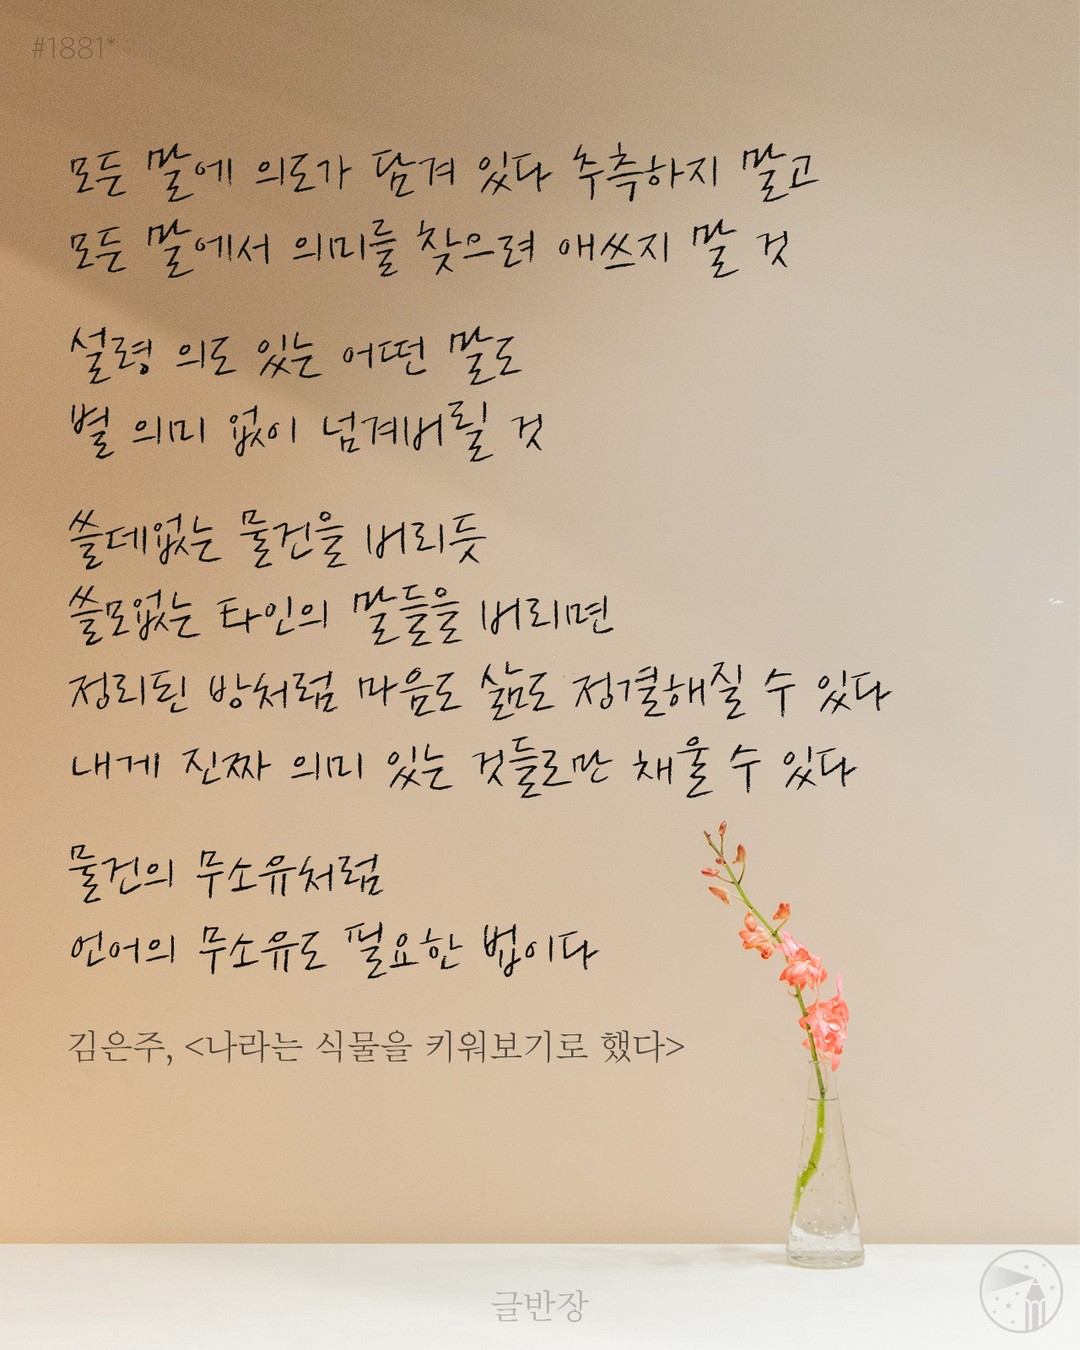 #1881*
모든 말에 의도가 담겨 있다 추측하지 말고
모든 말에서 의미를 찾으려 애쓰지 말 것
설령 의도 있는 어떤 말도
별 의미 없이 넘겨버릴 것
쓸데없는 물건을 버리듯
쓸모없는 타인의 말들을 버리면
정리된 방처럼 마음도 삶도 정결해질 수 있다
내게 진짜 의미 있는 것들로만 채울 수 있다
물건의 무소유처럼
언어의 무소유도 필요한 법이다
김은주, <나라는 식물을 키워보기로 했다>
글반장